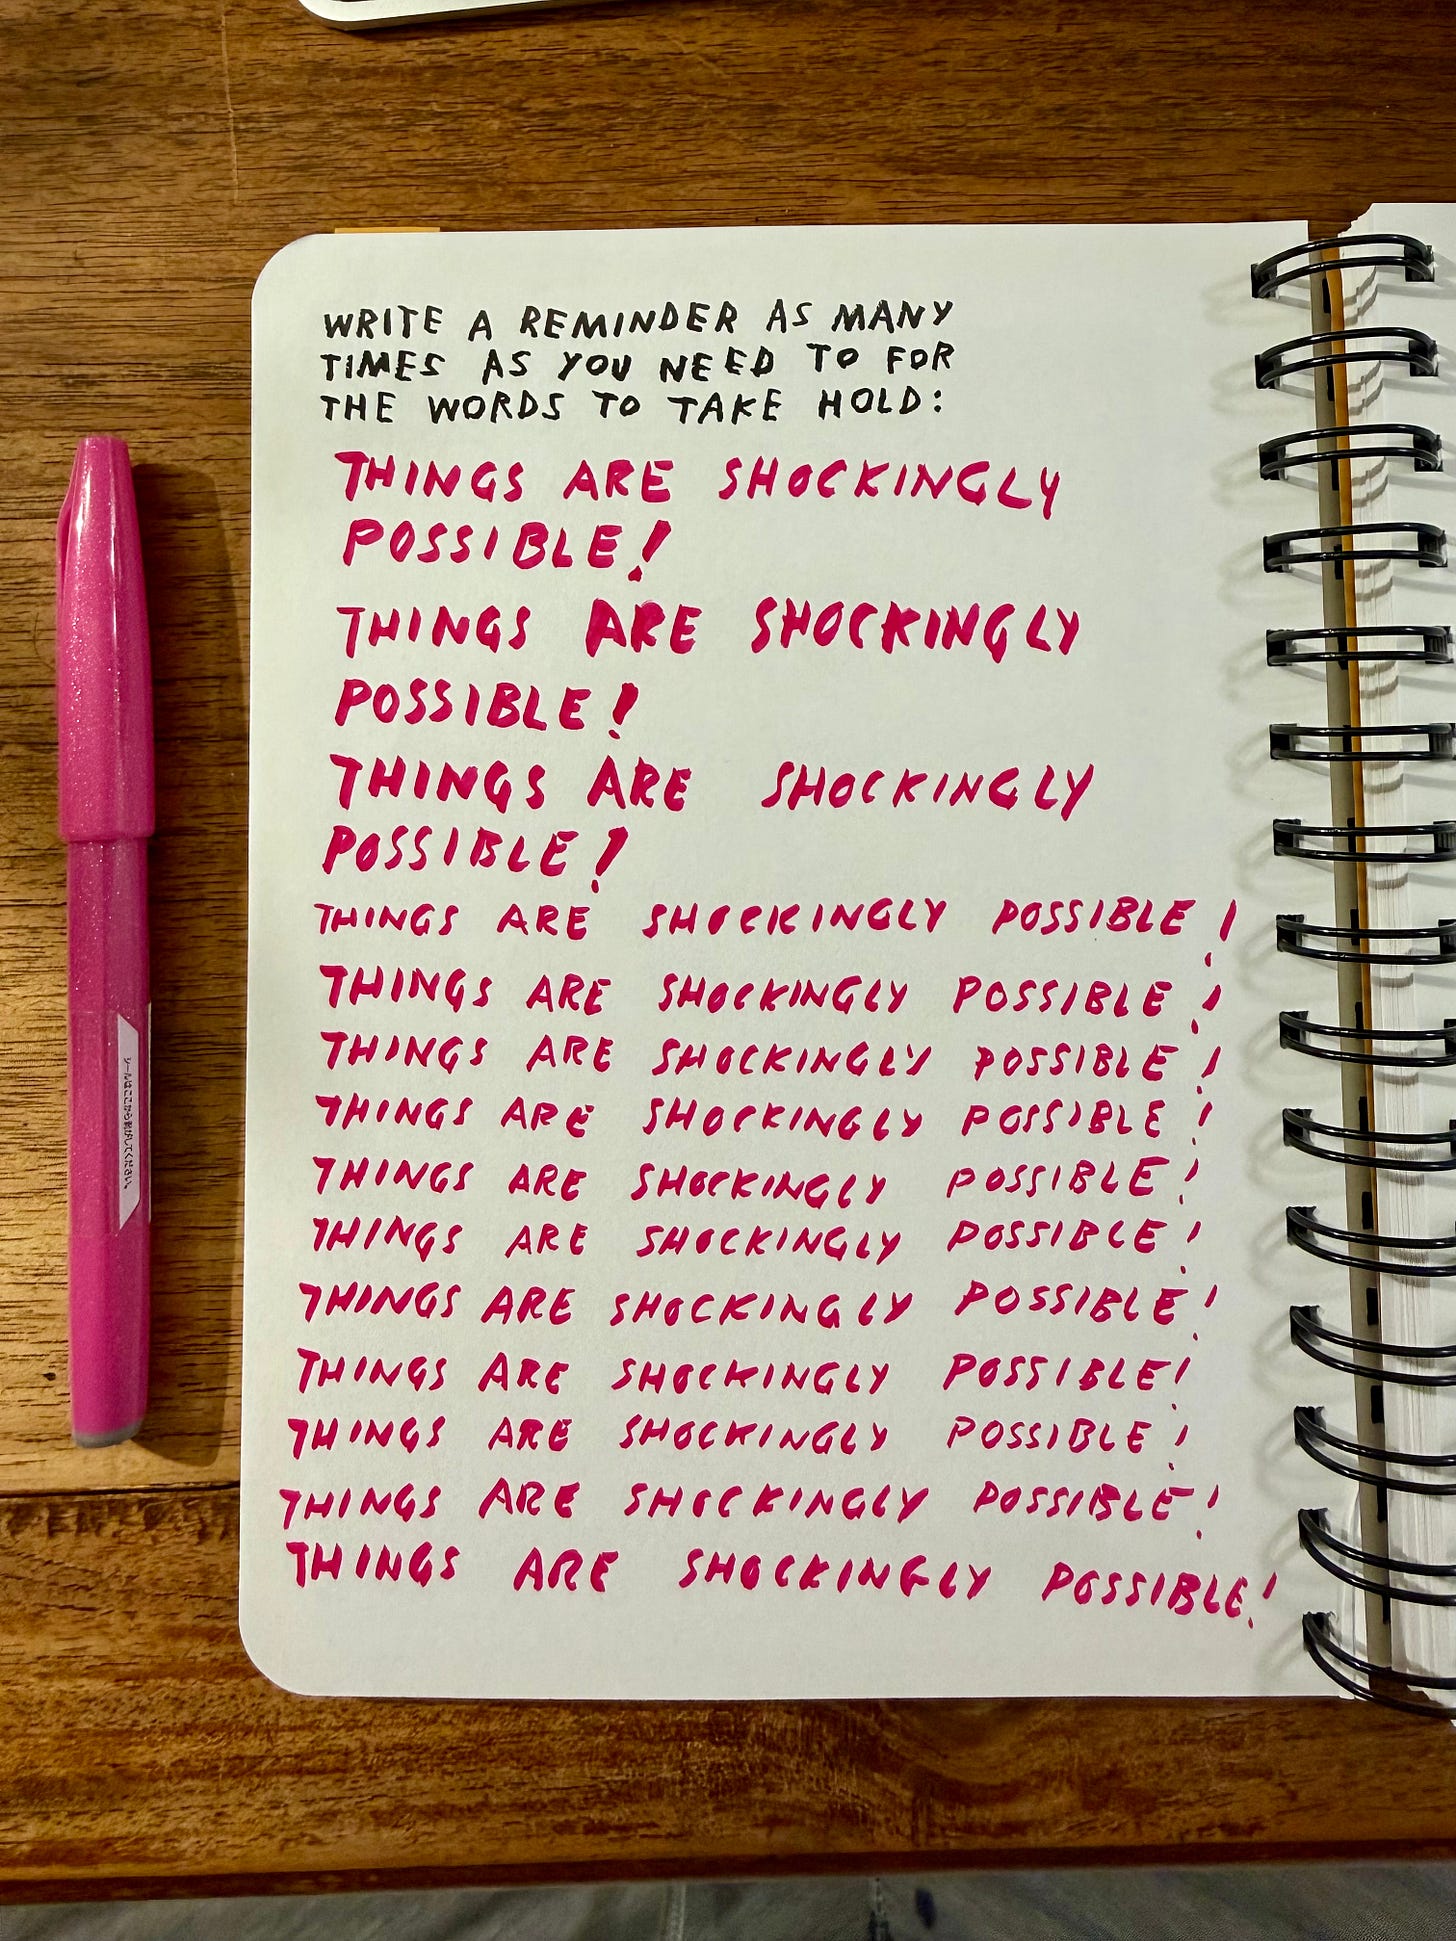 WRITE A REMINDER AS MANY
TIMES AS YOU NEED TO FOR
THE WORDS TO TAKE HOLD:
THINGS ARE SHOCKINGLY
POSSIBLE!
THINGS ARE SHOCKINGLY
POSSIBLE!
THINGS ARE SHOCKINGLY
POSSIBLE!
THINGS ARE SHOCKINGLY POSSIBLE!
THINGS ARE SHOCKINGLY POSSIBLE!
THINGS ARE SHOCKINGLY POSSIBLE!
THINGS ARE SHOCKINGLY POSSIBLE!
THINGS ARE SHOCKINGLY POSSIBLE!
THINGS ARE SHOCKINGLY POSSIBLE!
THINGS ARE SHOCKINGLY POSSIBLE!
THINGS ARE SHOCKINGLY POSSIBLE!
THINGS ARE SHOCKINGLY POSSIBLE!
THINGS ARE SHOCKINGLY POSSIBLE!
THINGS ARE SHOCKINGLY POSSIBLE!
シールはここから剥がしてください。